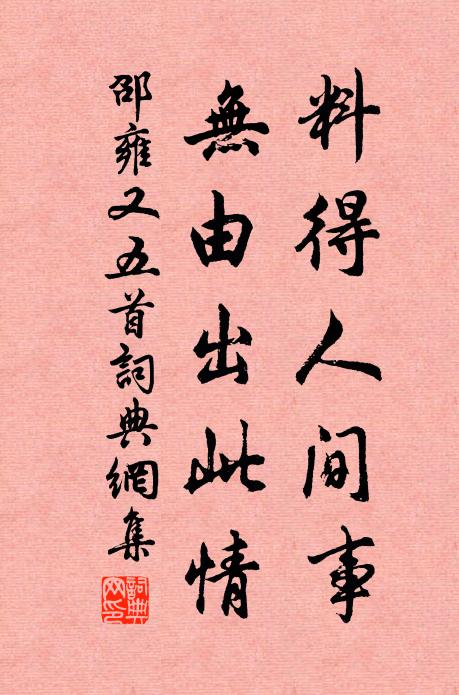 料得人間事
無由出此情
邵雍又五首詞典網集
詞典网印